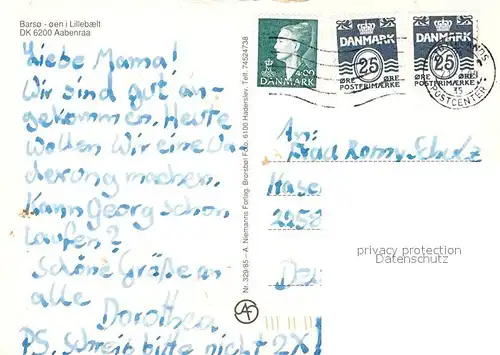 Barsø - øen i Lillebælt
DK 6200 Aabenraa
Liebe Mama!
Wir sind gut an-
gekommen. Heute
wollen Wir eine Wa
derung machen.
Kann Georg schon
laufen?
Schöne Größe an
alle
Dorothea
PS. Schreib bitte nicht 2X
Nr. 329/85 - A. Niemanns Forlag. Brorsbøl Foto, 6100 Haderslev, Telf. 74524738
4.00
DANMARK
DANMARK
25
ØRE ØRE
POSTFRIMÆRKE
DANMARK
25
ØRE ØRE
POSTFRIMÆRKE
POSTCENTER
An:
Frau Romy Schulz
Hase
2258
privacy protection
www.ansichtskartenversand.com